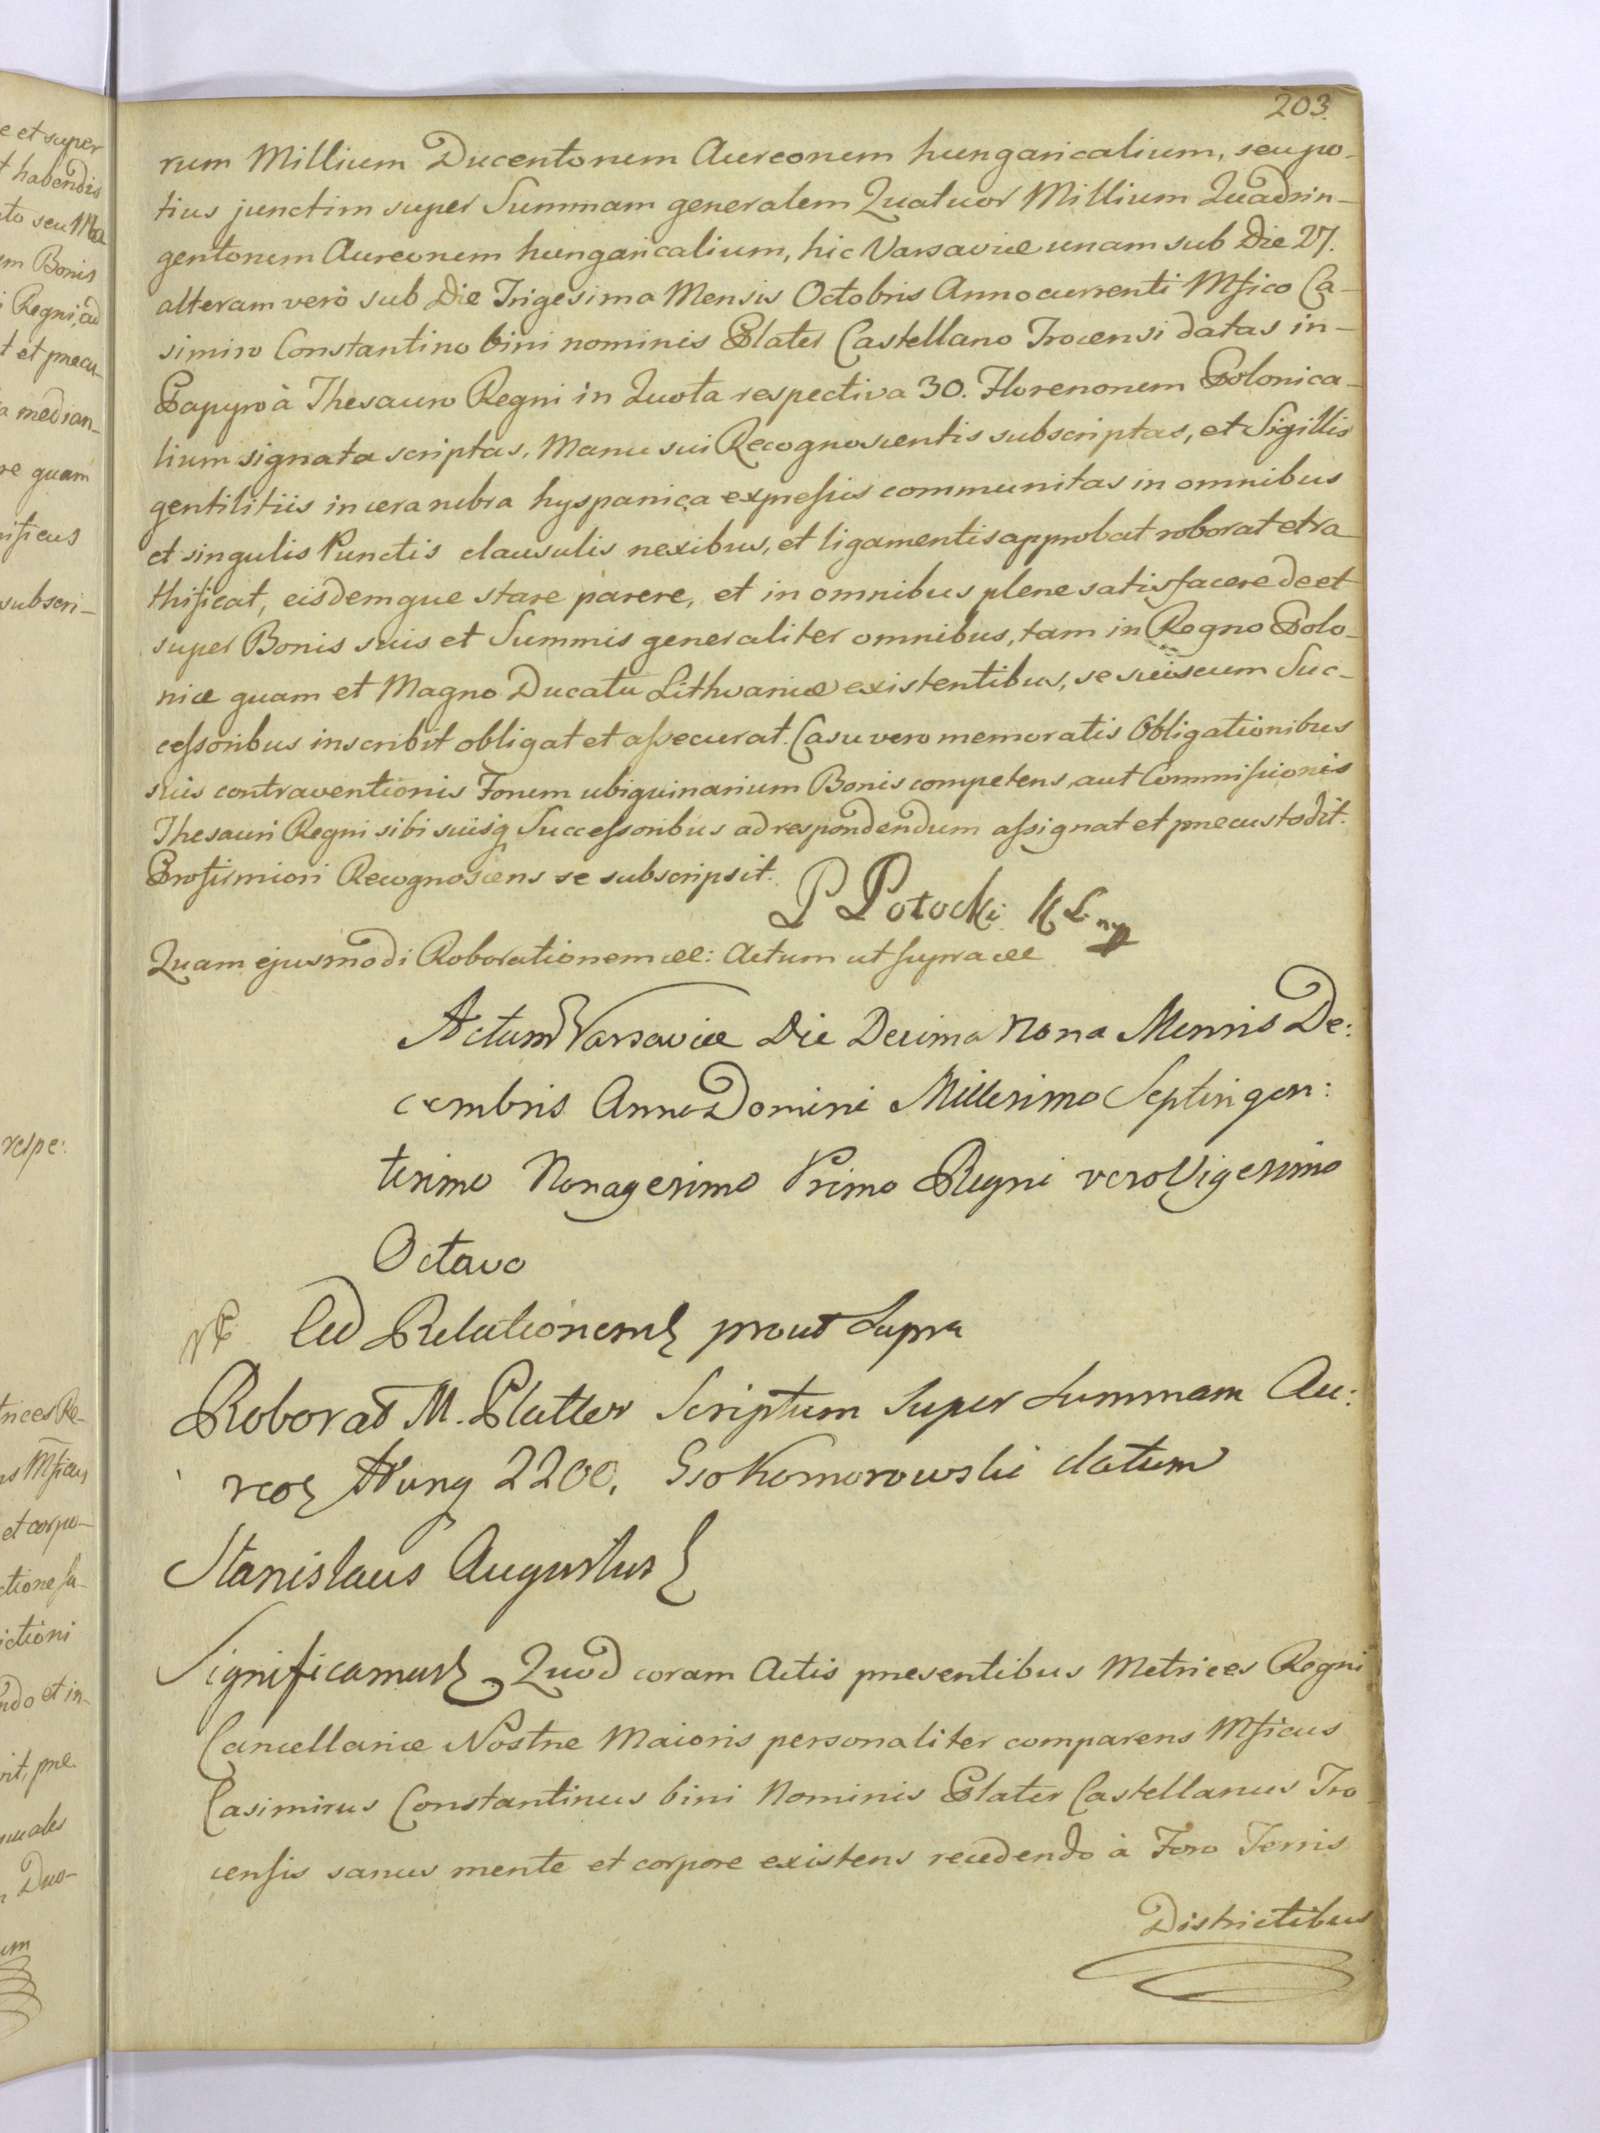 203.
rum Millium Ducentorum Aureorum hungaricalium, seu po-
tius junctim super Summam generalem Quatuor Millium Quadrin-
gentorum Aureorum hungaricalium, hic Varsaviæ unam sub Die 27.
alteram verò sub Die Trigesima Mensis Octobris Anno currenti Mfico Ca-
simiro Constantino bini nominis Plater Castellano Trocensi datas in-
Papyro à Thesauro Regni in Quota respectiva 30. Florenorum Polonica-
lium signata scriptas, Manu sui Recognoscentis subscriptas, et Sigillis
gentilitiis in cera rubra hyspanica expressis communitas in omnibus
et singulis Punctis clausulis nexibus, et ligamentis approbat roborat et ra
thificat, eisdemque stare parere, et in omnibus plene satisfacere de et
super Bonis suis et Summis generaliter omnibus, tam in Regno Polo-
niæ quam et Magno Ducatu Lithvaniæ existentibus, se suis cum Suc-
cessoribus inscribit obligat et assecurat. Casu vero memoratis Obligationibus
suis contraventionis Forum ubiquinarium Bonis competens, aut Commissionis
Thesauri Regni sibi suisq Successoribus ad respondendum assignat et præcustodit.
Pro firmiori Recognoscens se subscripsit.
P Potocki K L mp
Quam ejusmodi Roborationem æ: Actum ut supra æ
Actum Varsaviæ Die Decima Nona Mensis De:
cembris Anno Domini Millesimo Septingen:
tesimo Nonagesimo Primo Regni vero Vigesimo
Octavo
Ad Relationem prout Supra
Roborat M. Platter Scriptum super Summam Au:
reo Hung 2200. Gso Komorowski datum
Stanislaus Augustus
Significamus Quod coram Actis præsentibus Metrices Regni
Cancellariæ Nostræ Maioris personaliter comparens Mficus
Casimirus Constantinus bini Nominis Plater Castellanus Tro
censis sanus mente et corpore existens recedendo à Foro Terris
Districtibus